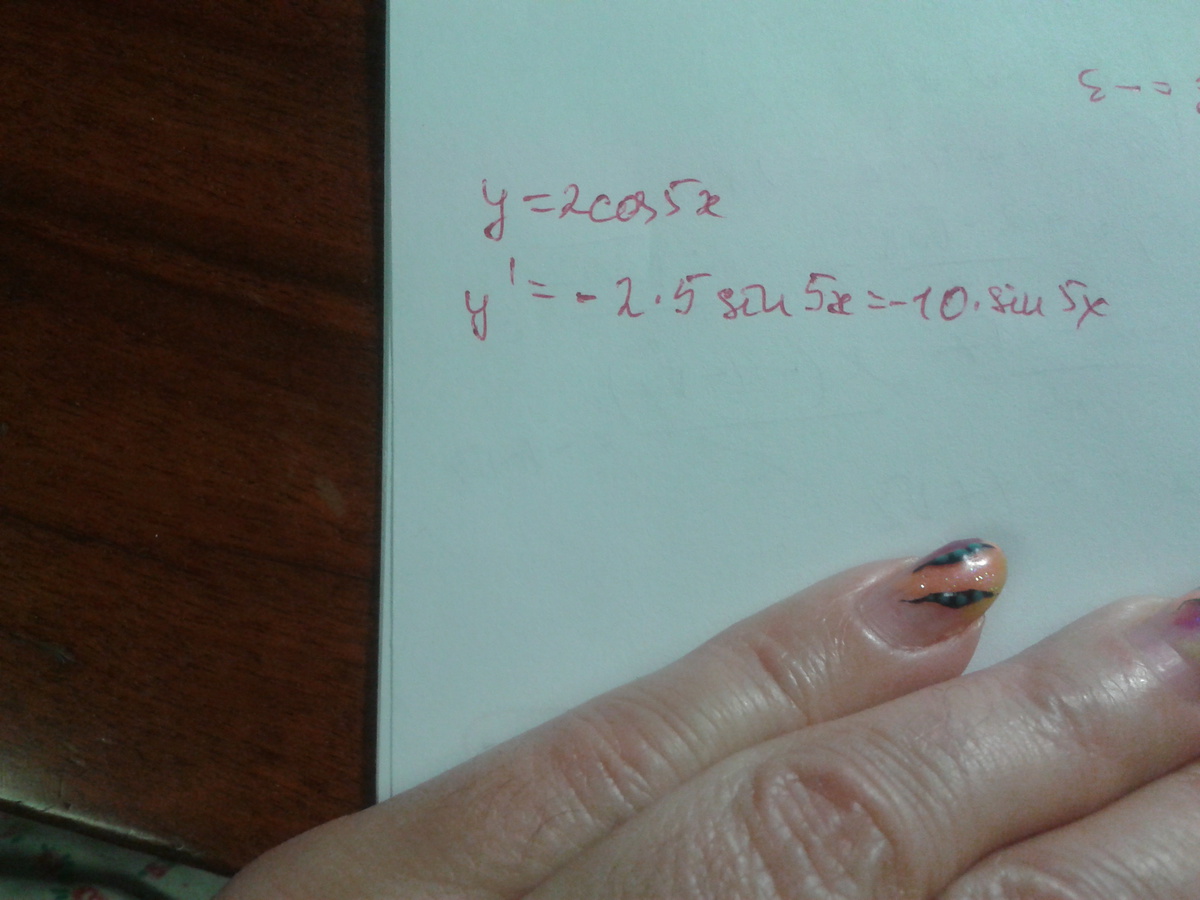 y = 2cos5x
y' = - 2 · 5 sin 5x = -10 · sin 5x